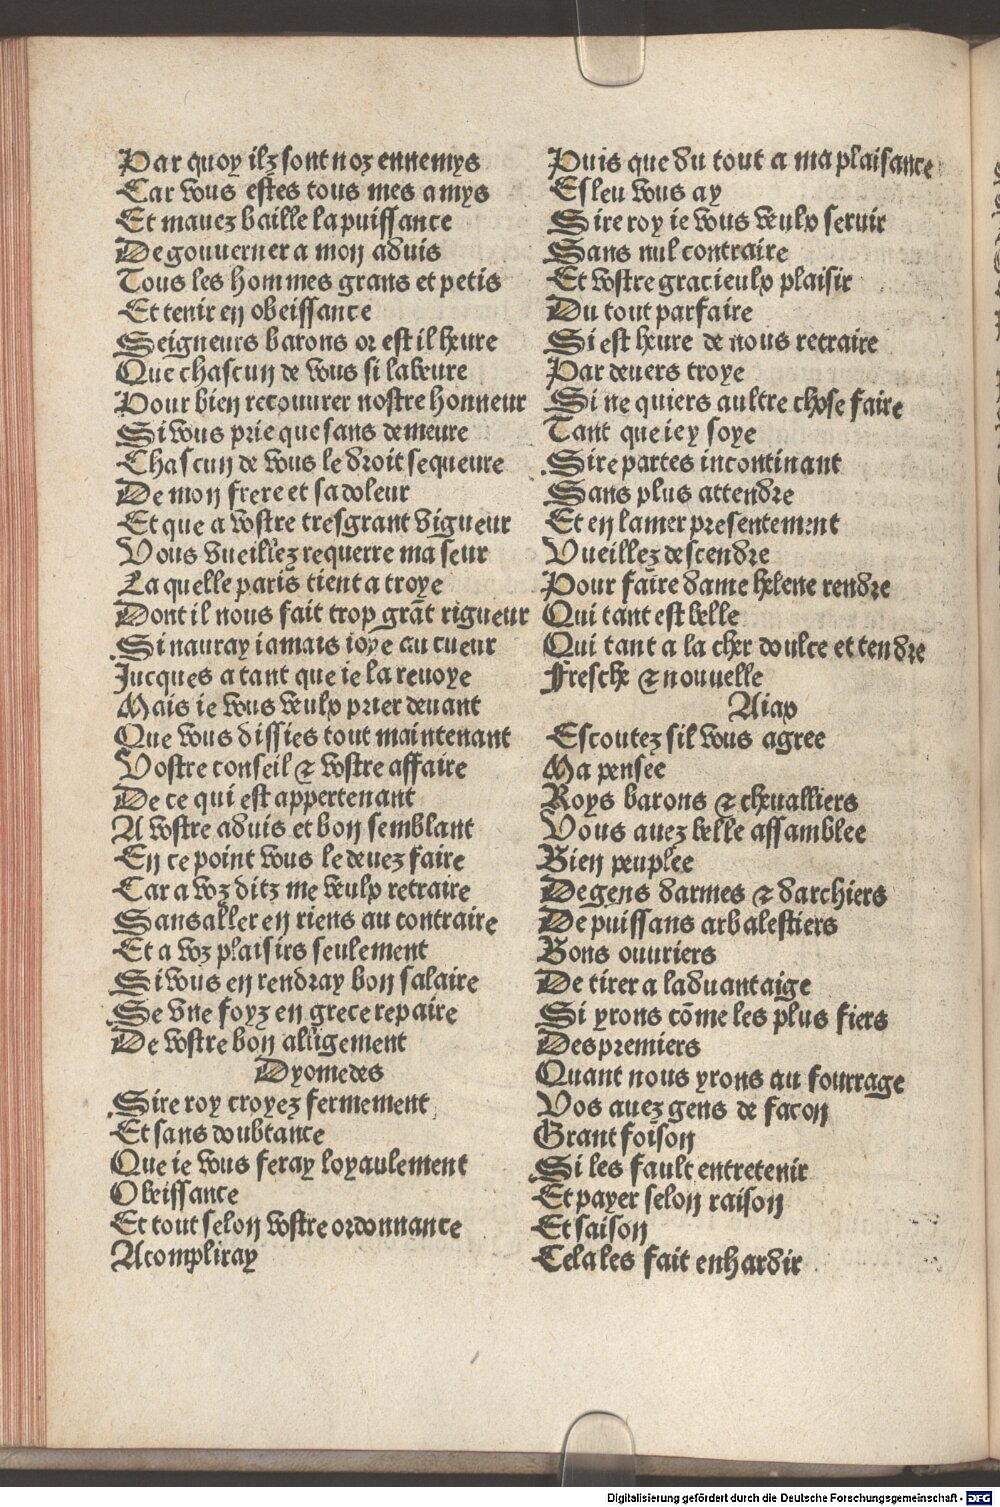 Par quoy ilz sont noz ennemys
Car vous estes tous mes amys
Et mauez baille la puissance
De gouuerner a mon aduis
Tous les hommes grans et petis
Et tenir en obeissance
Seigneurs barons or est il heure
Que chascun de vous si labeure
Pour bien recouurer nostre honneur
Si vous prie que sans demeure
Chascun de vous le droit sequeure
De mon frere et sa doleur
Et que a vostre tresgrant vigueur
Vous vueillez requerre ma seur
La quelle paris tient a troye
Dont il nous fait trop grãt rigueur
Si nauray iamais ioye au cueur
Jucques a tant que ie la reuoye
Mais ie vous veulx prier deuant
Que vous dissies tout maintenant
Vostre conseil & vostre affaire
De ce qui est appertenant
A vostre aduis et bon semblant
En ce point vous le deuez faire
Car a voz ditz me veulx retraire
Sans aller en riens au contraire
Et a voz plaisirs seulement
Si vous en rendray bon salaire
Se vne foyz en grece repaire
De vostre bon alligement
Dyomedes
Sire roy croyez fermement
Et sans doubtance
Que ie vous feray loyaulement
Obeissance
Et tout selon vostre ordonnance
Acompliray
Puis que du tout a ma plaisance
Esleu vous ay
Sire roy ie vous veulx seruir
Sans nul contraire
Et vostre gracieulx plaisir
Du tout parfaire
Si est heure de nous retraire
Par deuers troye
Si ne quiers aultre chose faire
Tant que iey soye
Sire partes incontinant
Sans plus attendre
Et en lamer presentement
Vueillez descendre
Pour faire dame helene rendre
Qui tant est belle
Qui tant a la cher doulce et tendre
Fresche & nouuelle
Aiax
Escoutez sil vous agree
Ma pensee
Roys barons & cheualliers
Vous auez belle assamblee
Bien peuplee
De gens darmes & darchiers
De puissans arbalestiers
Bons ouuriers
De tirer a laduantaige
Si yrons cõme les plus fiers
Des premiers
Quant nous yrons au fourrage
Vos auez gens de facon
Grant foison
Si les fault entretenir
Et payer selon raison
Et saison
Cela les fait enhardir
Digitalisierung gefördert durch die Deutsche Forschungsgemeinschaft - DFG